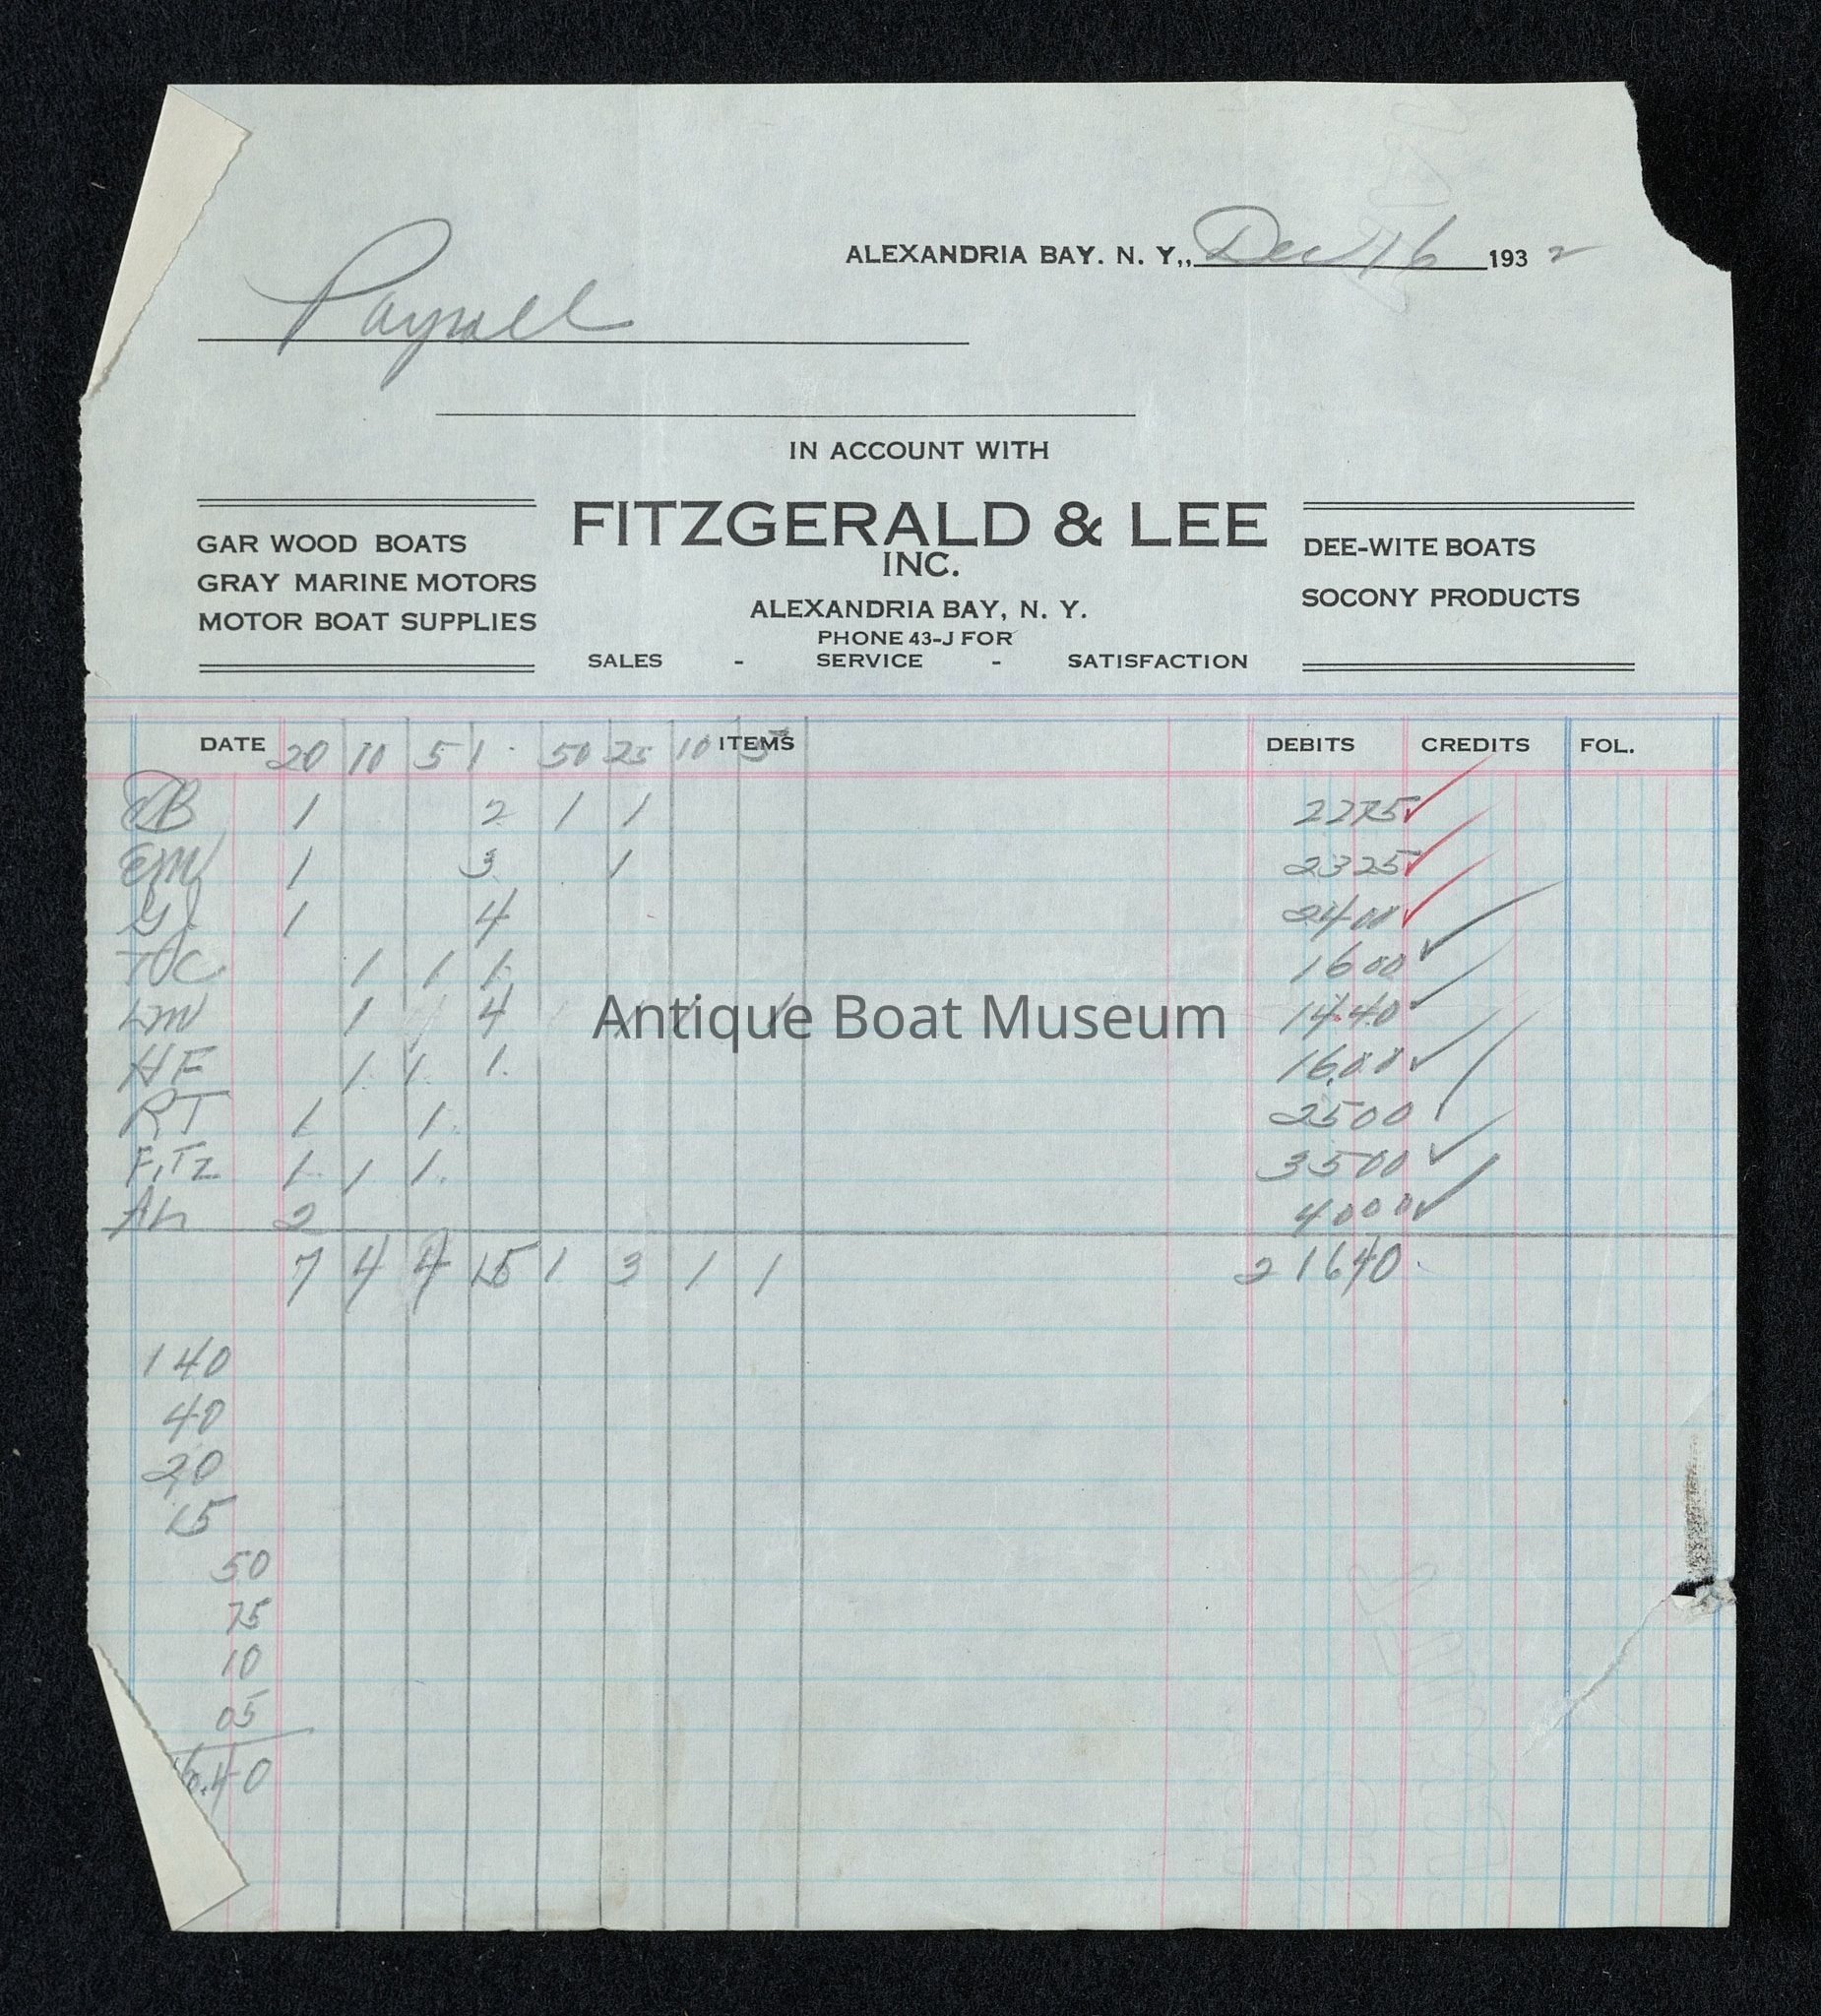 ALEXANDRIA BAY. N. Y., Dec 16 1932
Payroll
IN ACCOUNT WITH
FITZGERALD & LEE
INC.
GAR WOOD BOATS
GRAY MARINE MOTORS
MOTOR BOAT SUPPLIES
ALEXANDRIA BAY, N. Y.
PHONE 43-J FOR
SALES - SERVICE - SATISFACTION
DEE-WITE BOATS
SOCONY PRODUCTS
DATE ITEMS DEBITS CREDITS FOL.
20 10 5 1 50 25 10 5
1 2 1 1 2275
EM 1 3 1 2325
1 4 2400
1 1 1 1600
LM 1 4 1 1 1 1440
HF 1 1 1 1600
RT 1 1 2500
FITZ 1 1 1 3500
AL 2 4000
7 4 4 15 1 3 1 1 21640
140
40
20
15
50
75
10
05
6.40
Antique Boat Museum